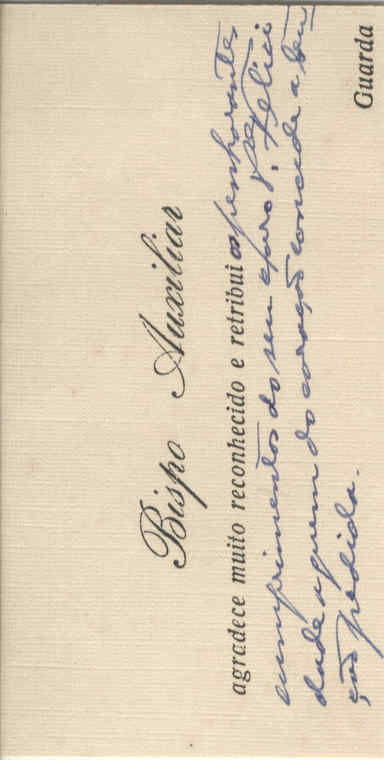 Bispo Auxiliar
agradece muito reconhecido e retribui os penhorantes
cumprimentos do seu
dade a quem do coração concede a bên
ção pedida.
Guarda